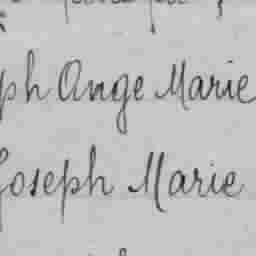 ph Ange Marie
Joseph Marie